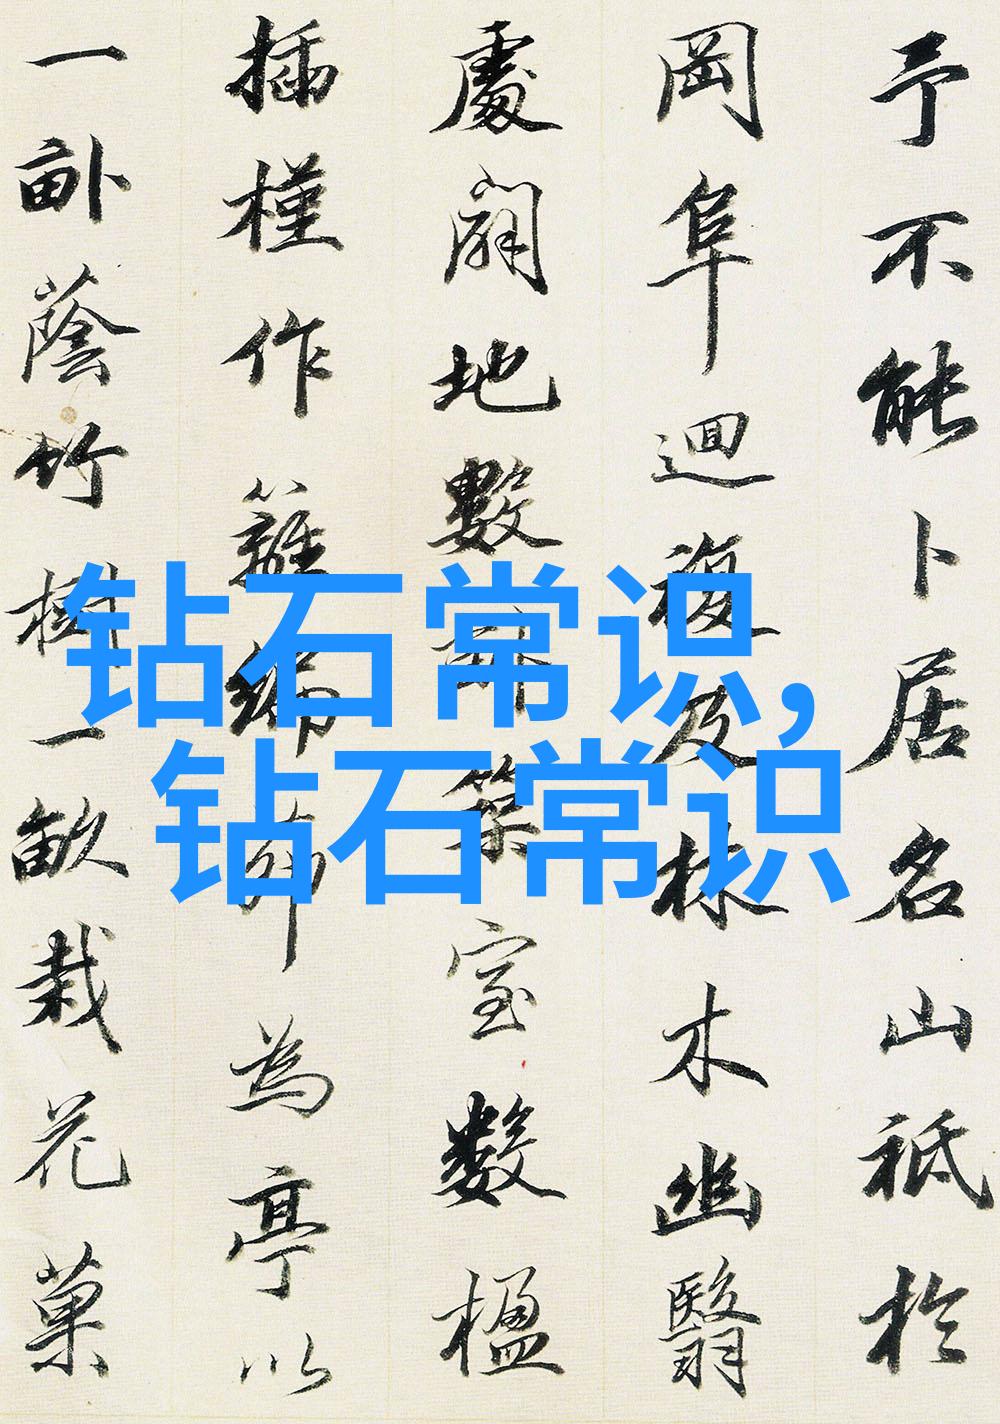 予不能卜居名山祗於
岡阜迴複及林木幽翳
處闢地數畝築室數楹
插槿作籬編茆為亭以
一畝蔭竹樹一畝栽花菓
钻石常识,
钻石常识